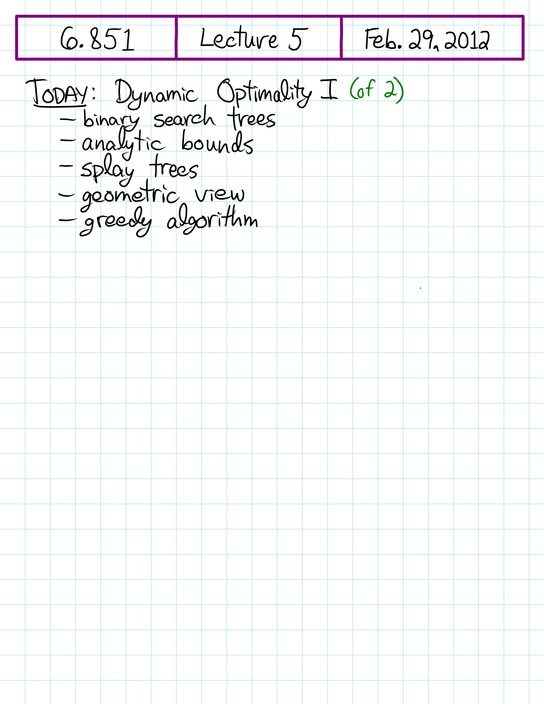 6.851 Lecture 5 Feb. 29, 2012
TODAY: Dynamic Optimality I (of 2)
– binary search trees
– analytic bounds
– splay trees
– geometric view
– greedy algorithm